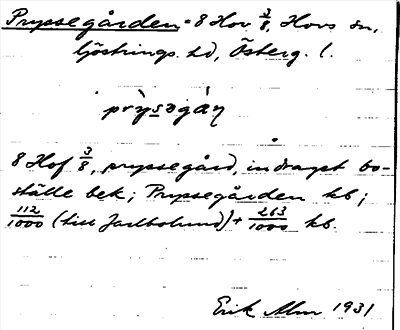 Pryssegården = 8 Hov 3/8, Hovs sn,
Göstrings hd, Österg. l.
prỳsǝgáṇ
8 Hof 3/8, pryssegård, indraget bo-
ställe bek; Pryssegården kb;
112/1000 (till Jarlbolund) + 263/1000 kb.
Erik Alm 1931